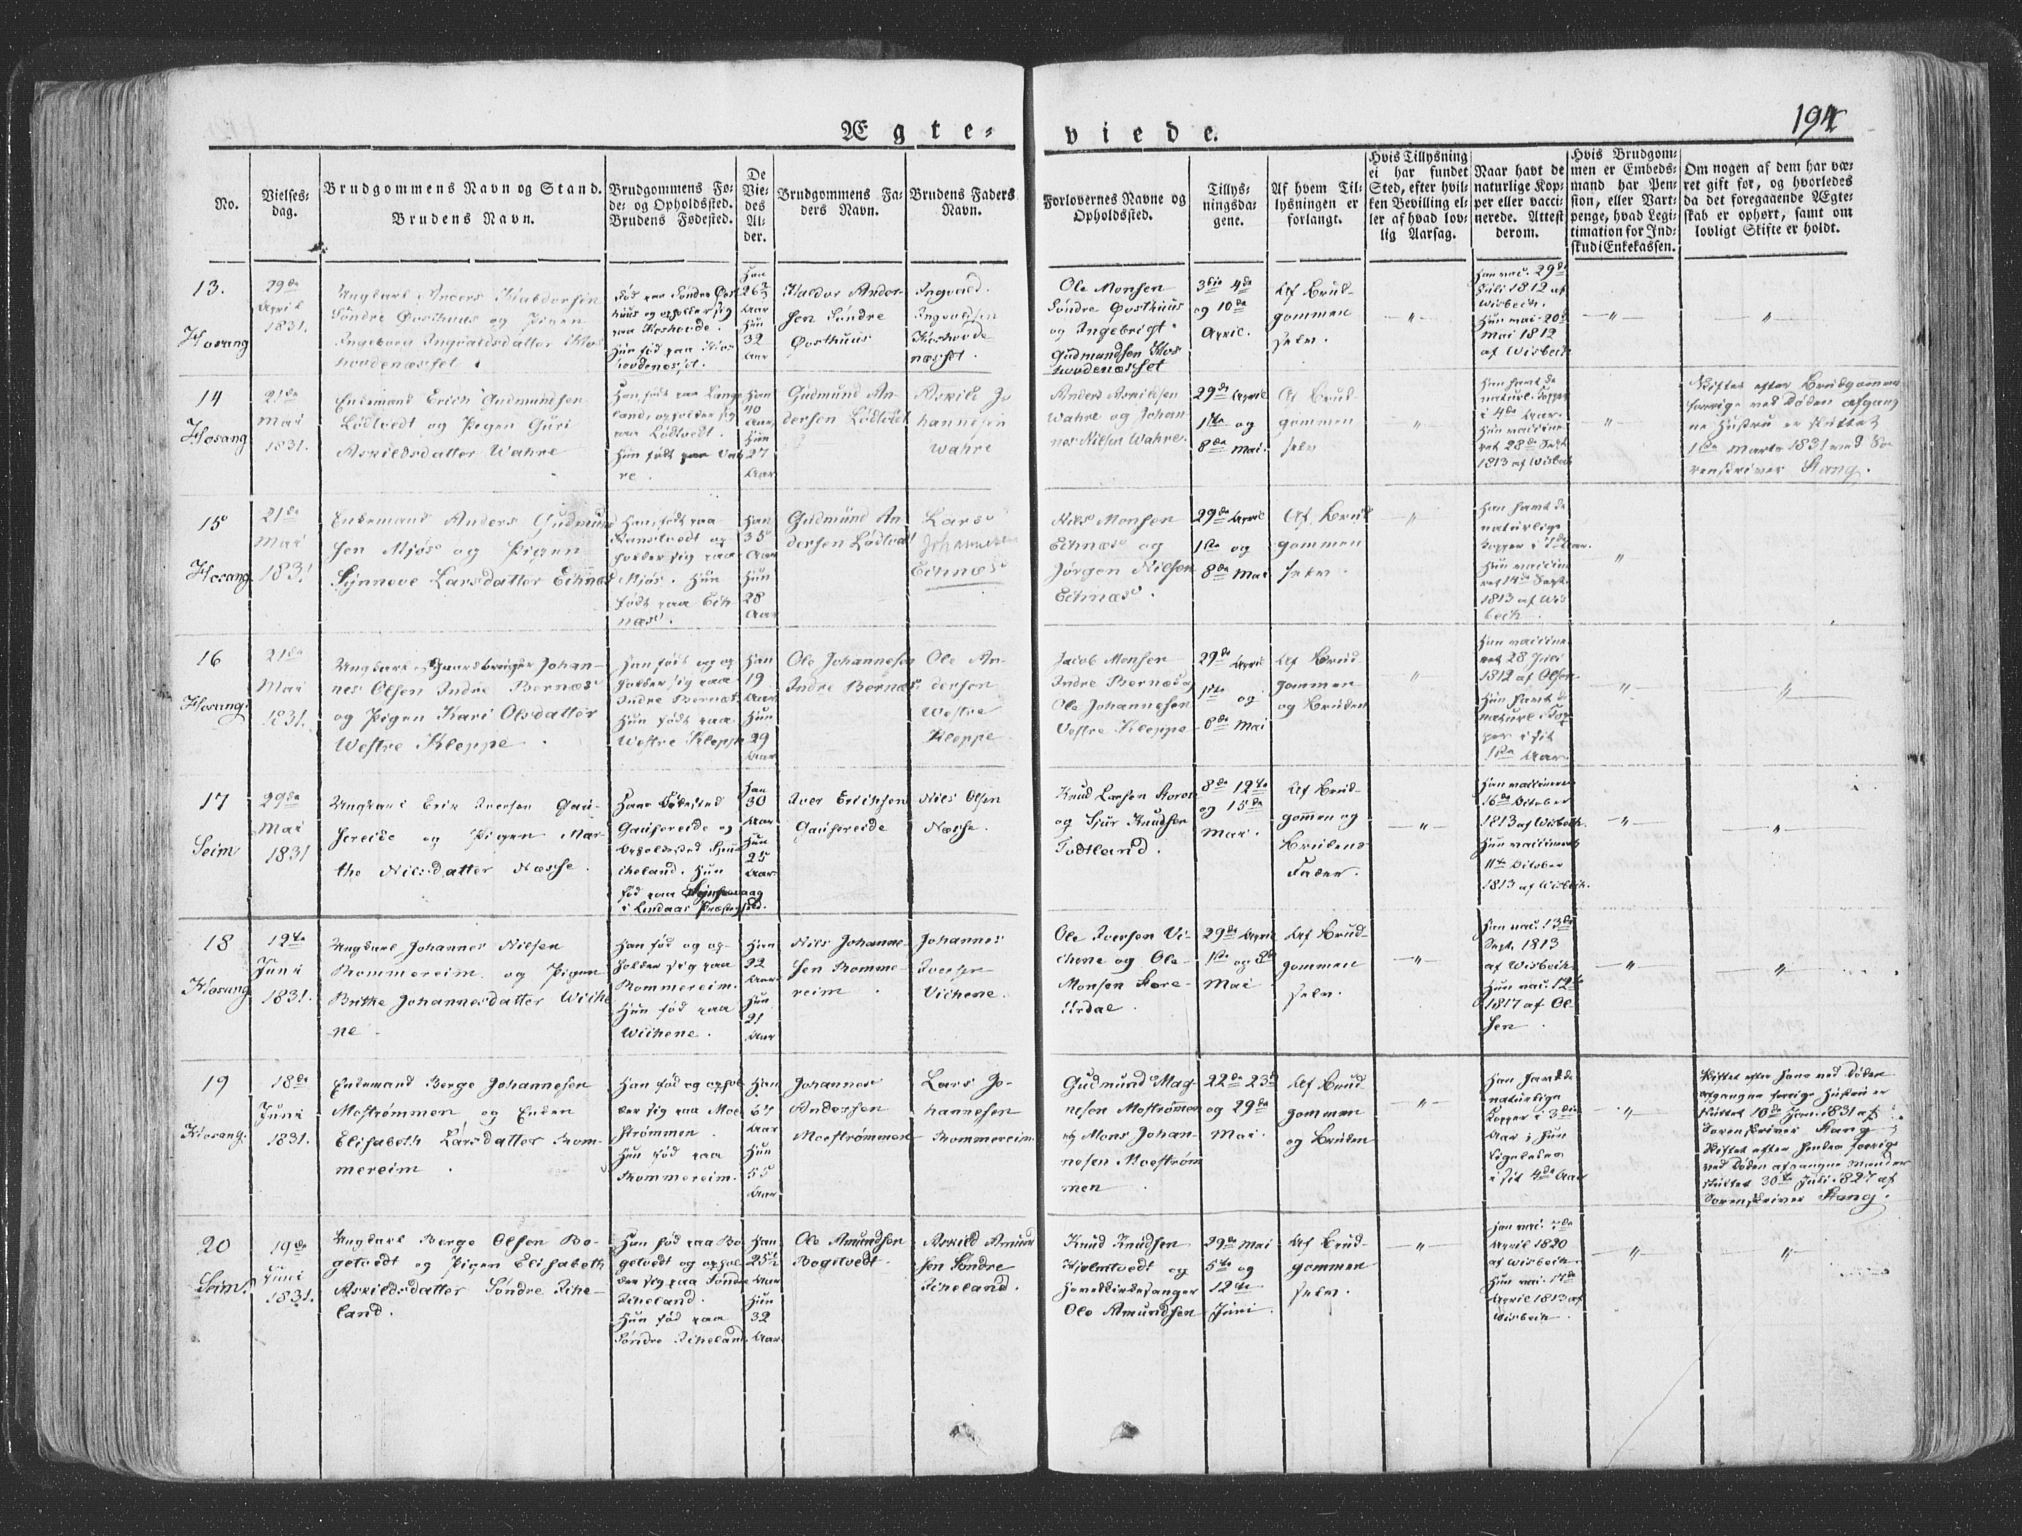 194
Ægte- viede.
No.
Vielses-
dag.
Brudgommens Navn og Stand.
Brudens Navn.
Brudgommens Fø-
de- og Opholdssted.
Brudens Fødested.
De
Vie-
des
Al-
der.
Brudgommens Fa-
ders Navn.
Brudens Faders
Navn.
Forlovernes Navne og
Opholdssted.
Tillys-
ningsda-
gene.
Af hvem Til-
lysningen er
forlangt.
Hvis Tillysning
ei har fundet
Sted, efter hvil-
ken Bevilling el-
ler af hvad lov-
lig Aarsag.
Naar havt de
naturlige Kop-
per eller vacci-
nerede. Attest
derom.
Hvis Brudgom-
men er Embeds-
mand har Pen-
sion, eller Vart-
penge, hvad Legi-
timation for Ind-
skud i Enkekassen.
Om nogen af dem har væ-
ret gift før, og hvorledes
da det foregaaende Ægte-
skab er ophørt, samt om
lovligt Skifte er holdt.
13.
Hosang
29de
April
1831.
Ungkarl Anders Haldorsen
Søndre Qvsthuus og Pigen
Ingeborg Ingvaldsdatter Kos
hovdenæsset.
Han
26⅔
Aar
Hun
32
Aar
Haldor Ander-
sen Søndre
Ingvald
Ingvaldsen
næsset.
Ole Monsen
og Ingebrigt
Gudmundsen Kos
hovdenæsset
3die 4de
og 10de
April.
Af Brud-
gommen
selv.
Han vac. 29de
Juli 1812 af
Wisbech.
Hun vac. 20de
Mai 1812
af Wisbech
14
Hosang
21de
Mai
1831.
Enkemand Erich Gudmundsen
Lødtvedt og Pigen Guri
Askildsdatter Wahre
Han
40
Aar
Hun
27
Aar
Gudmund An-
dersen Lødtvedt
Askild Jo
hannesen
Wahre
Anders Askildsen
Wahre og Johan-
nes Nilsen Wahre.
29de April
1ste og
8de Mai.
Af Brud-
gommen
selv
Han havt de
naturl. Kopper
i 4de Aar.
Hun vaccine
ret 28de Sept
1813 af Wisbech
Skiftet efter Brudgommens
forrige ved Døden afgang
ne Hustru er sluttet
1ste Marts 1831 ved So
renskriver Stang.
15
Hosang
21de
Mai
1831
Enkemand Anders Gudmund
sen Mjøs og Pigen
Synneve Larsdatter Echnæs
Mjøs. Hun
født paa Ech
næs.
Han
35
Aar
Hun
28
Aar
Gudmund An
dersen Lødtvedt
Lars
Johannesen
Echnæs
Nils Monsen
Echnæs og
Jørgen Nilsen
Echnæs.
29de April
1ste og
8de Mai
Af Brud
gommen
selv.
Han havt de
naturlige
Kopper i 7de Aar.
Hun vaccine
ret 14de Sept.
1813 af Wis
bech.
16
Hosang.
21de
Mai
1831.
Ungkarl, Gaardbruger Johan-
nes Olsen Indre Bernæs
og Pigen Kari Olsdatter
Westre Kleppe.
Han født og op
holder sig paa
Indre Bernæs
Hun født paa
Westre Kleppe
Han
19
Aar
Hun
29
Aar
Ole Johannesen
Indre Bernæs.
Ole An-
dersen
Westre
Kleppe.
Jacob Monsen
Indre Bernæs og
Ole Johannesen
Vestre Kleppe
29de April
1ste og
8de Mai
Af Brud
gommen
og Bruden
Han vaccine
ret 28 Juli
1812 af Olsen
Hun havt de
naturl. Kop
per i sit
1ste Aar.
17
Seim
29de
Mai
1831
Ungkarl Erik Iversen Gau-
sereide og Pigen Mar-
the Nilsdatter Næsse.
Hans Fødested
Gausereide og
Opholdssted
Hun
fød paa
i Lindaas Præstegjeld.
Han
30
Aar
Hun
25
Aar
Iver Erichsen
Gausereide
Nils Olsen
Næsse.
Knud Larsen
og Sjur Knudsen
Todtland.
8de 12te
og 15de
Mai.
Af Brud-
gommen og
Brudens
Fader.
Han vaccineret
16de October
1813 af Wisbech.
Hun vaccineret
11te October
1813 af Wisbech.
18
Hosang
12te
Juni
1831.
Ungkarl Johannes Nilsen
Rommereim og Pigen
Brithe Johannesdatter Wiche
ne
Han fød og op-
holder sig paa
Rommereim.
Hun fød paa
Wichene.
Han
22
Aar
Hun
21
Aar
Nils Johanne-
sen Romme
reim
Johannes
Iversen
Vichene.
Ole Iversen Vi-
chene og Ole
Monsen Store-
Urdal.
29de April
1ste og 8de
Mai
Af Brud-
gommen
selv.
Han vac. 13de
Sept. 1813
af Wisbech.
Hun vac. 12te
1817 af Ol-
sen.
19
Hosang.
18de
Juni
1831.
Enkemand Berge Johannesen
Mostrømmen og Enken
Elisabeth Larsdatter Rom-
mereim.
Han fød og ophol
der sig paa Moe
strømmen.
Hun fød paa
Rommereim.
Han
Aar
Hun
55
Aar
Johannes
Andersen
Moestrømmen
Lars Jo-
hannesen
Rommereim
Gudmund Mag-
nesen Mostrømmen
og Mons Johan-
nesen Moestrøm
men
22de 23de
og 29de
Mai.
Af Brud
gommen
og Bruden
Han havt de
naturlige
Kopper i 3die
Aar i Hun
ligeledes
i sit 4de Aar
Skiftet efter hans ved Døden
afgangne forrige Hustru er
sluttet 10de Juni 1831 af
Sorenskriver Stang
Skiftet efter hendes forrige
ved Døden afgangne Mand er
sluttet 30te Juli 1827 af
Sorenskriver Stang.
20
Seim.
19de
Juni
1831.
Ungkarl Berge Olsen Bo-
getvedt og Pigen Elisabeth
Askildsdatter Søndre Riche-
land.
Han fød paa Bo
getvedt og ophol
der sig paa Søndre
Richeland.
Hun fød paa
Søndre Richeland
Han
25½
Aar
Hun
32
Aar
Ole Amundsen
Bogetvedt.
Askild Amund
sen Søndre
Richeland.
Knud Knudsen
Hjelmtvedt og
Ole Amundsen
29de Mai
5te og
12te
Juni.
Af Brud-
gommen
selv.
Han vac. 7de
April 1820
af Wisbech.
Hun vac. 17de
April 1813 af
Wisbech.